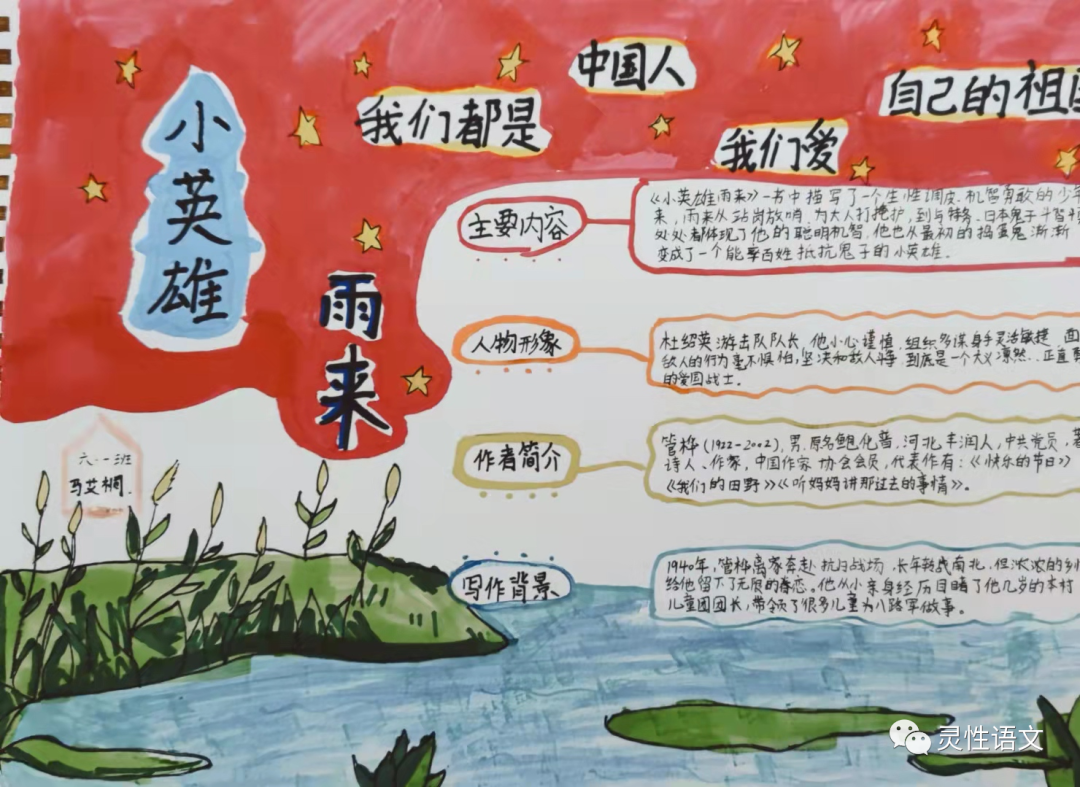 小英雄
雨来
我们都是
中国人
我们爱
自己的祖国
主要内容
《小英雄雨来》一书中描写了一个生性调皮、机智勇敢的少年
来,雨来从站岗放哨,为大人打掩护,到与特务、日本鬼子斗智
处处都体现了他的聪明机智。他也从最初的捣蛋鬼渐渐
变成了一个能率百姓抵抗鬼子的小英雄.
人物形象
杜绍英游击队队长,他小心谨慎,组织多谋身手灵活敏捷,面
敌人的行为毫不惧怕,坚决和敌人斗争到底是一个大义凛然..正直
的爱国战士.
作者简介
管桦(1922-2002),男.原名鲍化普,河北丰润人,中共党员,著
诗人、作家,中国作家协会会员,代表作有:《快乐的节日》
《我们的田野》《听妈妈讲那过去的事情》。
写作背景
1940年,管桦离家奔赴抗日战场,长年转战南北,但浓浓的乡
给他留下了无限的眷恋。他从小亲身经历目睹了他几岁的本村
儿童团团长,带领了很多儿童为八路军做事。
六.一班
马艾桐.
灵性语文